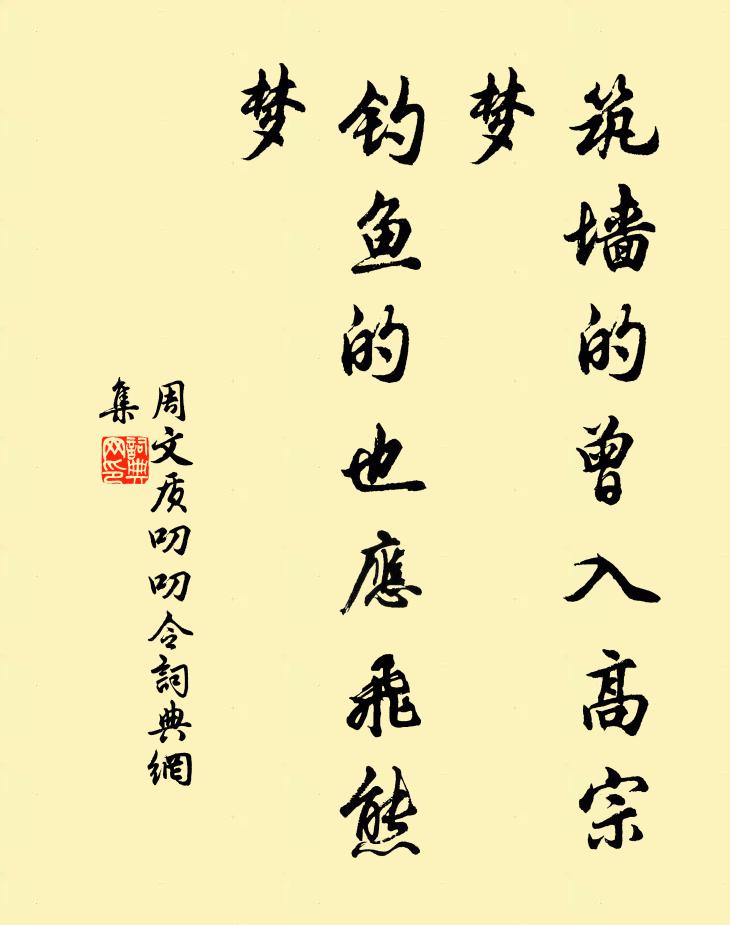 筑墙的曾入高宗
梦
钓鱼的也應飛熊
梦
周文质叨叨令詞典網
集
詞典網印